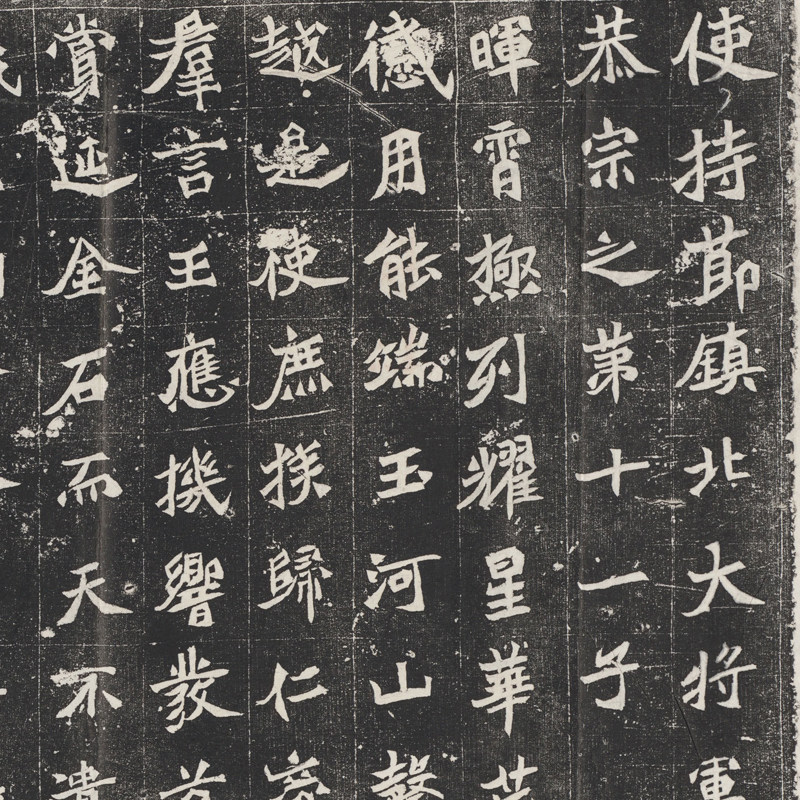 使持節鎮北大将軍
恭宗之第十一子
暉霄極列耀星華
用能端玉河山聲
越是使庶族歸仁
羣言王應機響發
賞延金石而天不遺